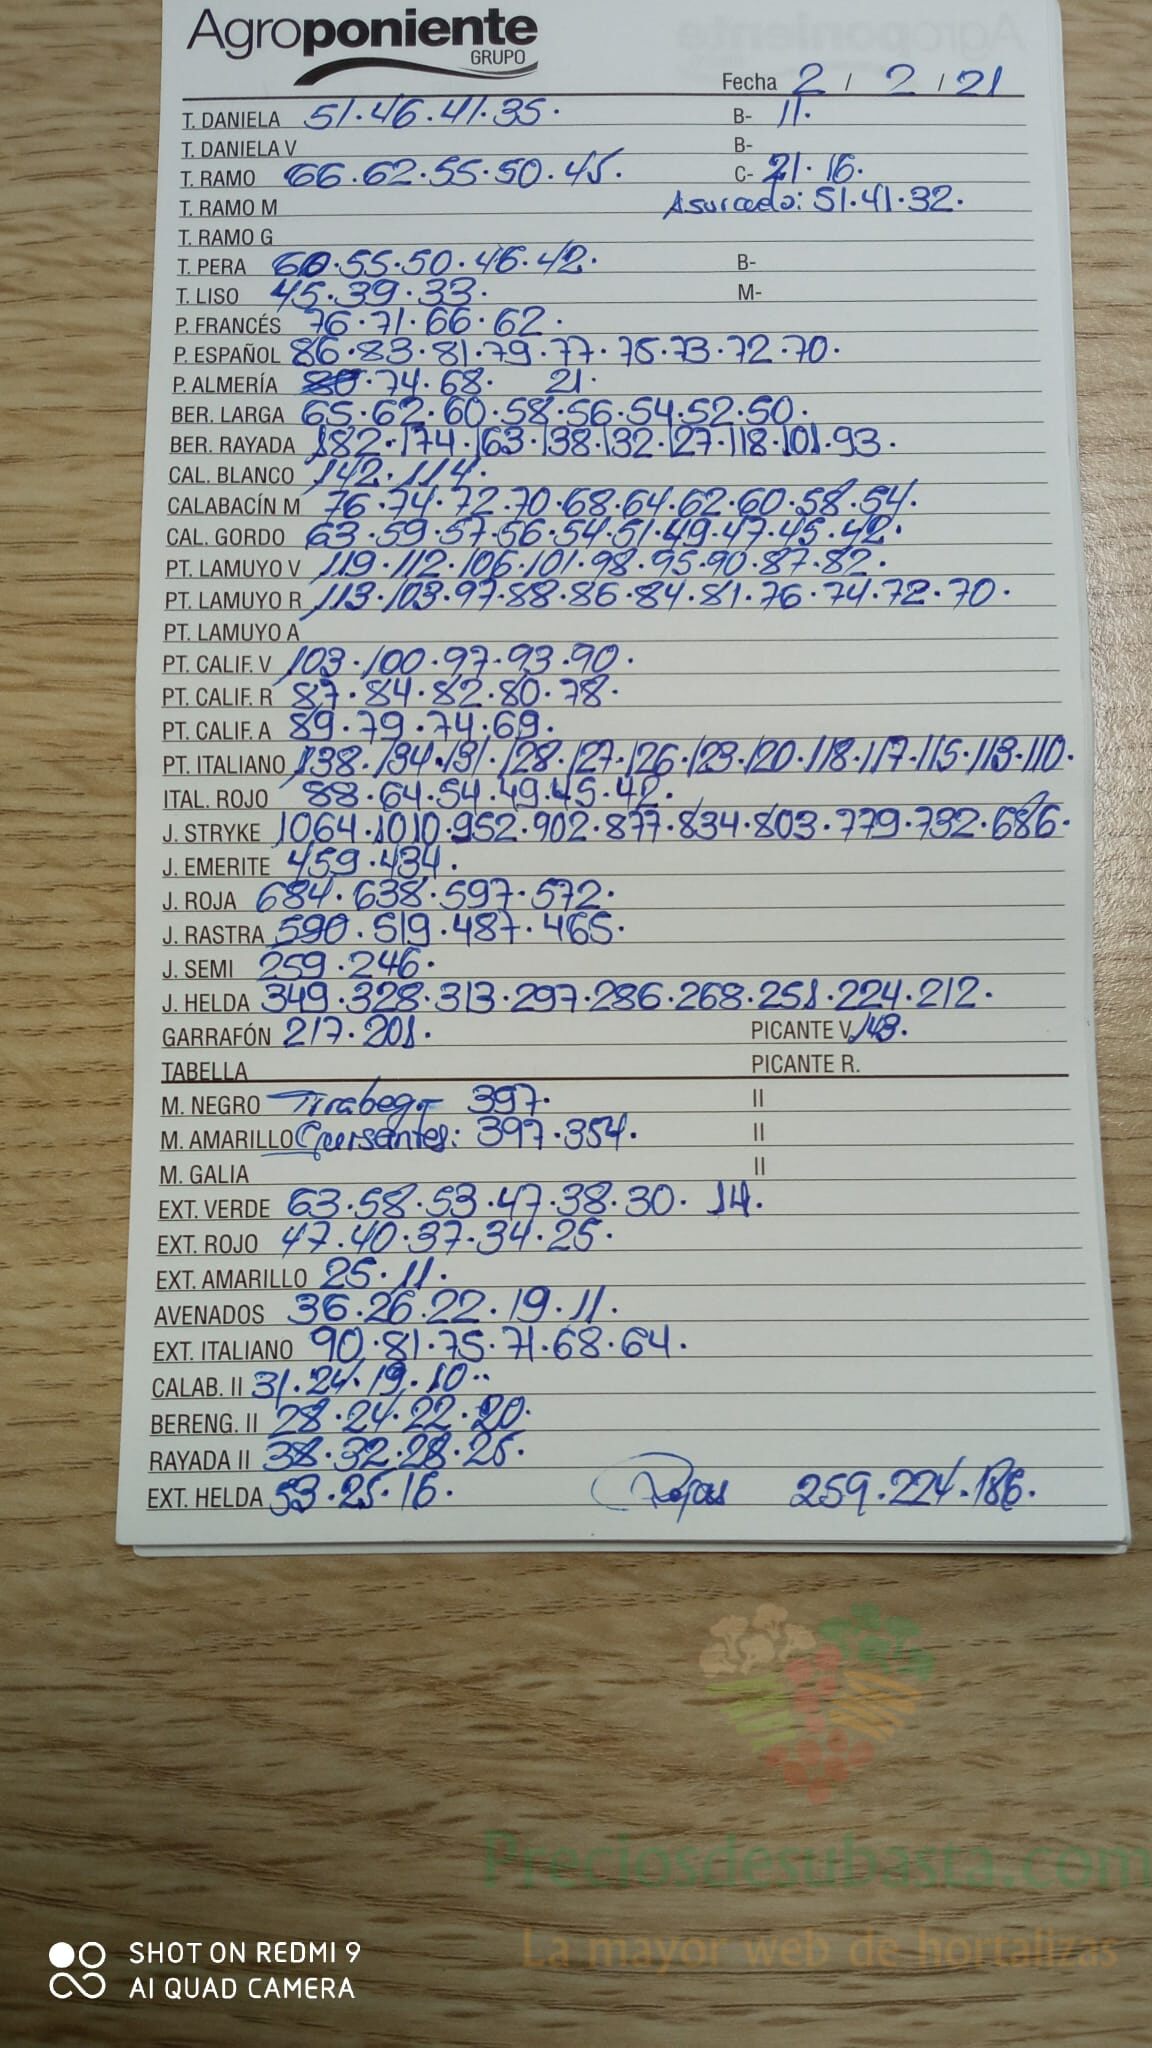 Agroponiente
GRUPO
Fecha 2 / 2 / 21
T. DANIELA 51.46.41.35. B- 11.
T. DANIELA V B-
T. RAMO 66.62.55.50.45. C- 21.16.
T. RAMO M Asurcado: 51.41.32.
T. RAMO G
T. PERA 60.55.50.46.42. B-
T. LISO 45.39.33. M-
P. FRANCÉS 76.71.66.62.
P. ESPAÑOL 86.83.81.79.77.75.73.72.70.
P. ALMERÍA 80.74.68. 21.
BER. LARGA 65.62.60.58.56.54.52.50.
BER. RAYADA 182.174.163.138.132.127.118.101.93.
CAL. BLANCO 142.114.
CALABACÍN M 76.74.72.70.68.64.62.60.58.54.
CAL. GORDO 63.59.57.56.54.51.49.47.45.42.
PT. LAMUYO V 119.112.106.101.98.95.90.87.82.
PT. LAMUYO R 113.103.97.88.86.84.81.76.74.72.70.
PT. LAMUYO A
PT. CALIF. V 103.100.97.93.90.
PT. CALIF. R 87.84.82.80.78.
PT. CALIF. A 89.79.74.69.
PT. ITALIANO 138.134.131.128.127.126.123.120.118.117.115.113.110.
ITAL. ROJO 88.64.54.49.45.42.
J. STRYKE 1064.1010.952.902.877.834.803.779.732.686.
J. EMERITE 459.434.
J. ROJA 684.638.597.572.
J. RASTRA 590.519.487.465.
J. SEMI 259.246.
J. HELDA 349.328.313.297.286.268.251.224.212.
GARRAFÓN 217.201. PICANTE V. 148.
TABELLA PICANTE R.
M. NEGRO Tirabeqe 397. II
M. AMARILLO Guisantes: 397.354. II
M. GALIA II
EXT. VERDE 63.58.53.47.38.30. 14.
EXT. ROJO 47.40.37.34.25.
EXT. AMARILLO 25.11.
AVENADOS 36.26.22.19.11.
EXT. ITALIANO 90.81.75.71.68.64.
CALAB. II 31.24.19.10..
BERENG. II 28.24.22.20.
RAYADA II 38.32.28.25.
EXT. HELDA 53.25.16. Rojas 259.224.186.
Preciosdesubasta.com
La mayor web de hortalizas
SHOT ON REDMI 9
AI QUAD CAMERA